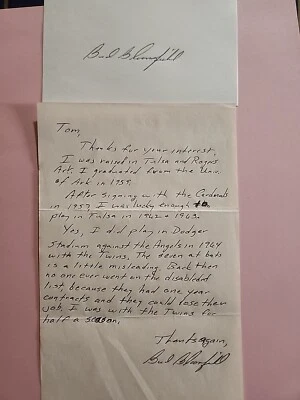 Bud Bloomfield
Tom,
Thanks for your interest.
I was raised in Tulsa and Rogers
Ark. I graduated from the Univ.
of Ark in 1959.
After signing with the Cardinals
in 1957 I was lucky enough to
play in Tulsa in 1962 & 1963.
Yes, I did play in Dodger
Stadium against the Angels in 1964
with the Twins. The seven at bats
is a little misleading. Back then
no one ever went on the disabled
list, because they had one year
contracts and they could lose their
job. I was with the Twins for
half a season.
Thanks again,
Bud Bloomfield